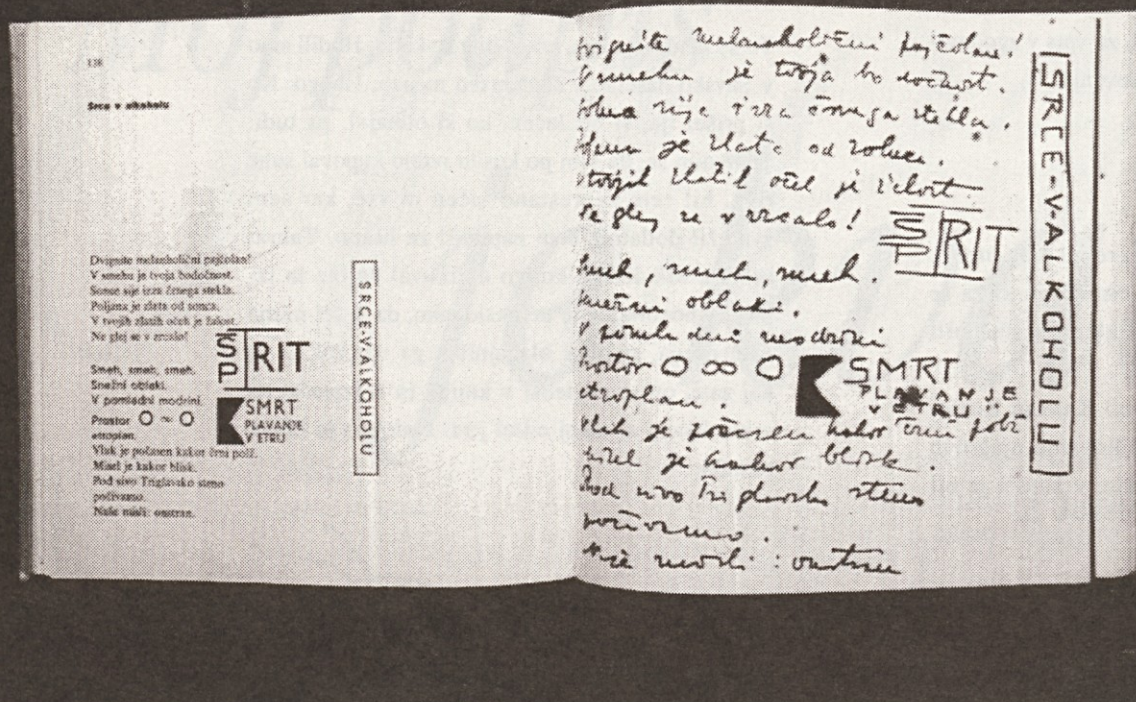 138
Srce v alkoholu
Dvignite melanholični pajčolan!
V smehu je tvoja bodočnost.
Sonce sije izza črnega stekla.
Poljana je zlata od sonca.
V tvojih zlatih očeh je žalost.
Ne glej se v zrcalo!
ŠPIRIT
Smeh, smeh, smeh.
Snežni oblaki.
V pomladni modrini.
Prostor O ~ O
etroplan.
SMRT
PLAVANJE
V ETRU
Vlak je počasen kakor črni polž.
Misel je kakor blisk.
Pod sivo Triglavsko steno
počivamo.
Naše misli: onstran.
SRCE-V-ALKOHOLU
dvignite melanholični pajčolan!
V smehu je tvoja bodočnost.
sonce sije izza črnega stekla.
poljana je zlata od solnca.
v tvojih zlatih očeh je žalost
Ne glej se v zrcalo!
ŠPIRIT
Smeh, smeh, smeh.
snežni oblaki.
V pomladni modrini
prostor O ∞ O
SMRT
PLAVANJE
V ETRU
etroplan.
vlak je počasen kakor črni polž
misel je kakor blisk.
Pod sivo Triglavsko steno
počivamo.
Naše misli: onstran
SRCE-V-ALKOHOLU